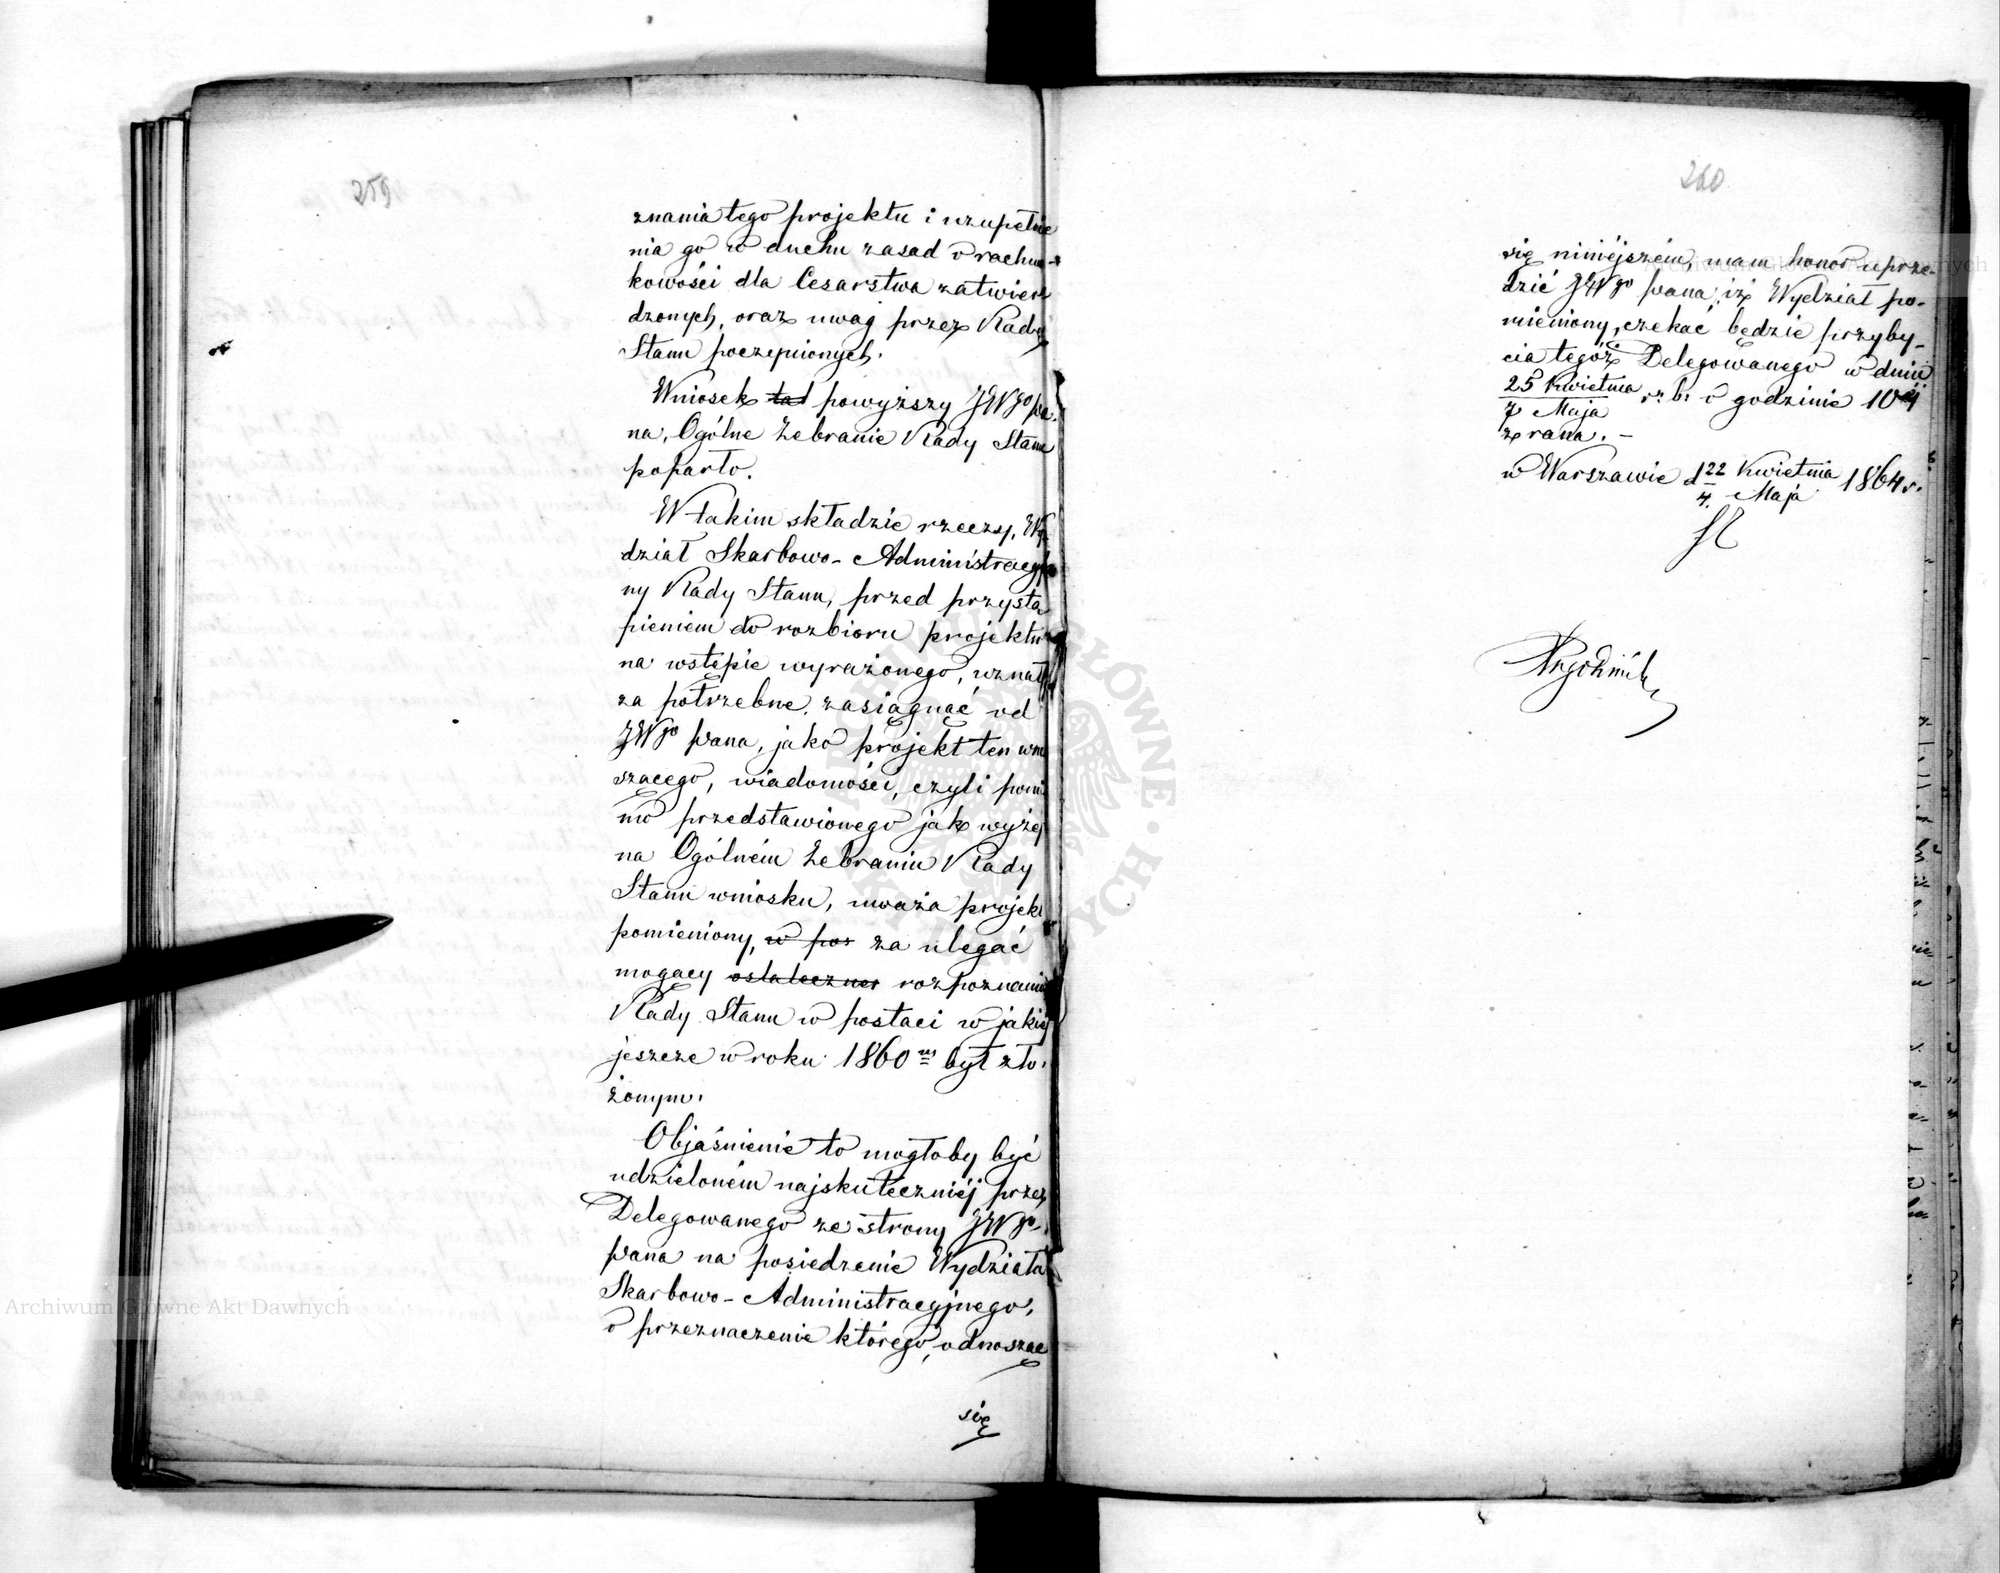 259
znania tego projektu i uzupełnie
nia go w duchu zasad o rachun-
kowości dla Cesarstwa zatwier
dzonych, oraz uwag przez Radę
Stanu poczynionych.
Wniosek tat powyższy JWgo pa-
na, Ogólne Zebranie Rady Stanu
poparło.
W takim składzie rzeczy, Wy
dział Skarbowo-Administracyj
ny Rady Stanu, przed przystą
pieniem do rozbioru projektu
na wstępie wyrażonego, uznał
za potrzebne zasiągnąć od
JWgo pana, jako projekt ten wno
szącego, wiadomości, czyli pomi
mo przedstawionego jak wyżej
na Ogólném Zebraniu Rady
Stanu wniosku, uważa projekt
pomieniony, w pos za ulegać
mogący ostateczner rozpoznaniu
Rady Stanu w postaci w jakiej
jeszcze w roku 1860m był zło-
żonym.
Objaśnienie to mogłoby być
udzieloném najskuteczniéj przez
Delegowanego ze strony JWgo
pana na posiedzenie Wydziału
Skarbowo-Administracyjnego,
o przeznaczenie którego, odnosząc
się
260
się niniéjszém, mam honor uprze-
dzić JWgo pana, iż Wydział po-
mieniony, czekać będzie przyby-
cia tegóż Delegowanego w dniu
25 Kwietnia
7 Maja
r. b. o godzinie 10éj
z rana. -
w Warszawie d 22 Kwietnia
4 Maja
1864 r.
Archiwum Główne Akt Dawnych
Archiwum Główne Akt Dawnych